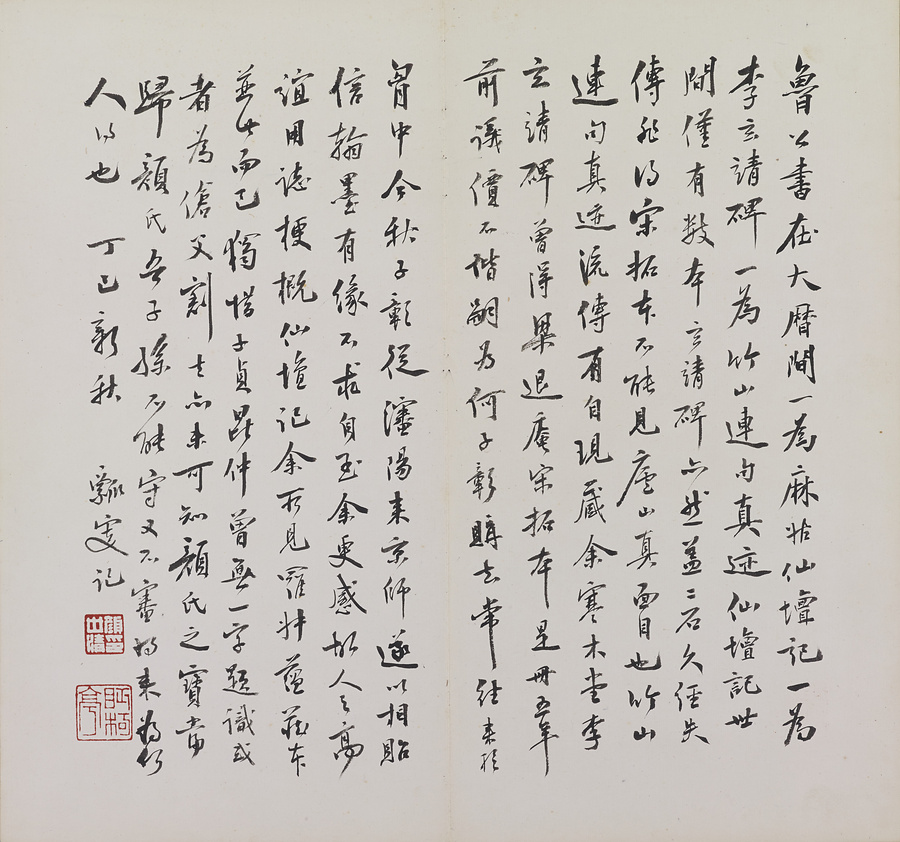 魯公書在大曆間一為麻姑仙壇記一為
李玄靖碑一為竹山連句真迹仙壇記世
間僅有數本玄靖碑亦然蓋二石久經失
傳非得宋拓本不能見廬山真面目也竹山
連句真迹流傳有自現藏余寒木堂李
玄靖碑曾得梁退庵宋拓本是冊五年
前議價不諧嗣為何子彰購去常往來於
胷中今秋子彰從瀋陽來京師遂以相貽
信翰墨有緣不求自至余更感故人之高
誼用誌梗概仙壇記余所見羅
並此而已獨惜子貞昆仲曾無一字題識或
者為傖父割去亦未可知顏氏之寶當
歸顏氏吾子孫不能守又不審將來為何
人得也 丁巳新秋 瓢叟記